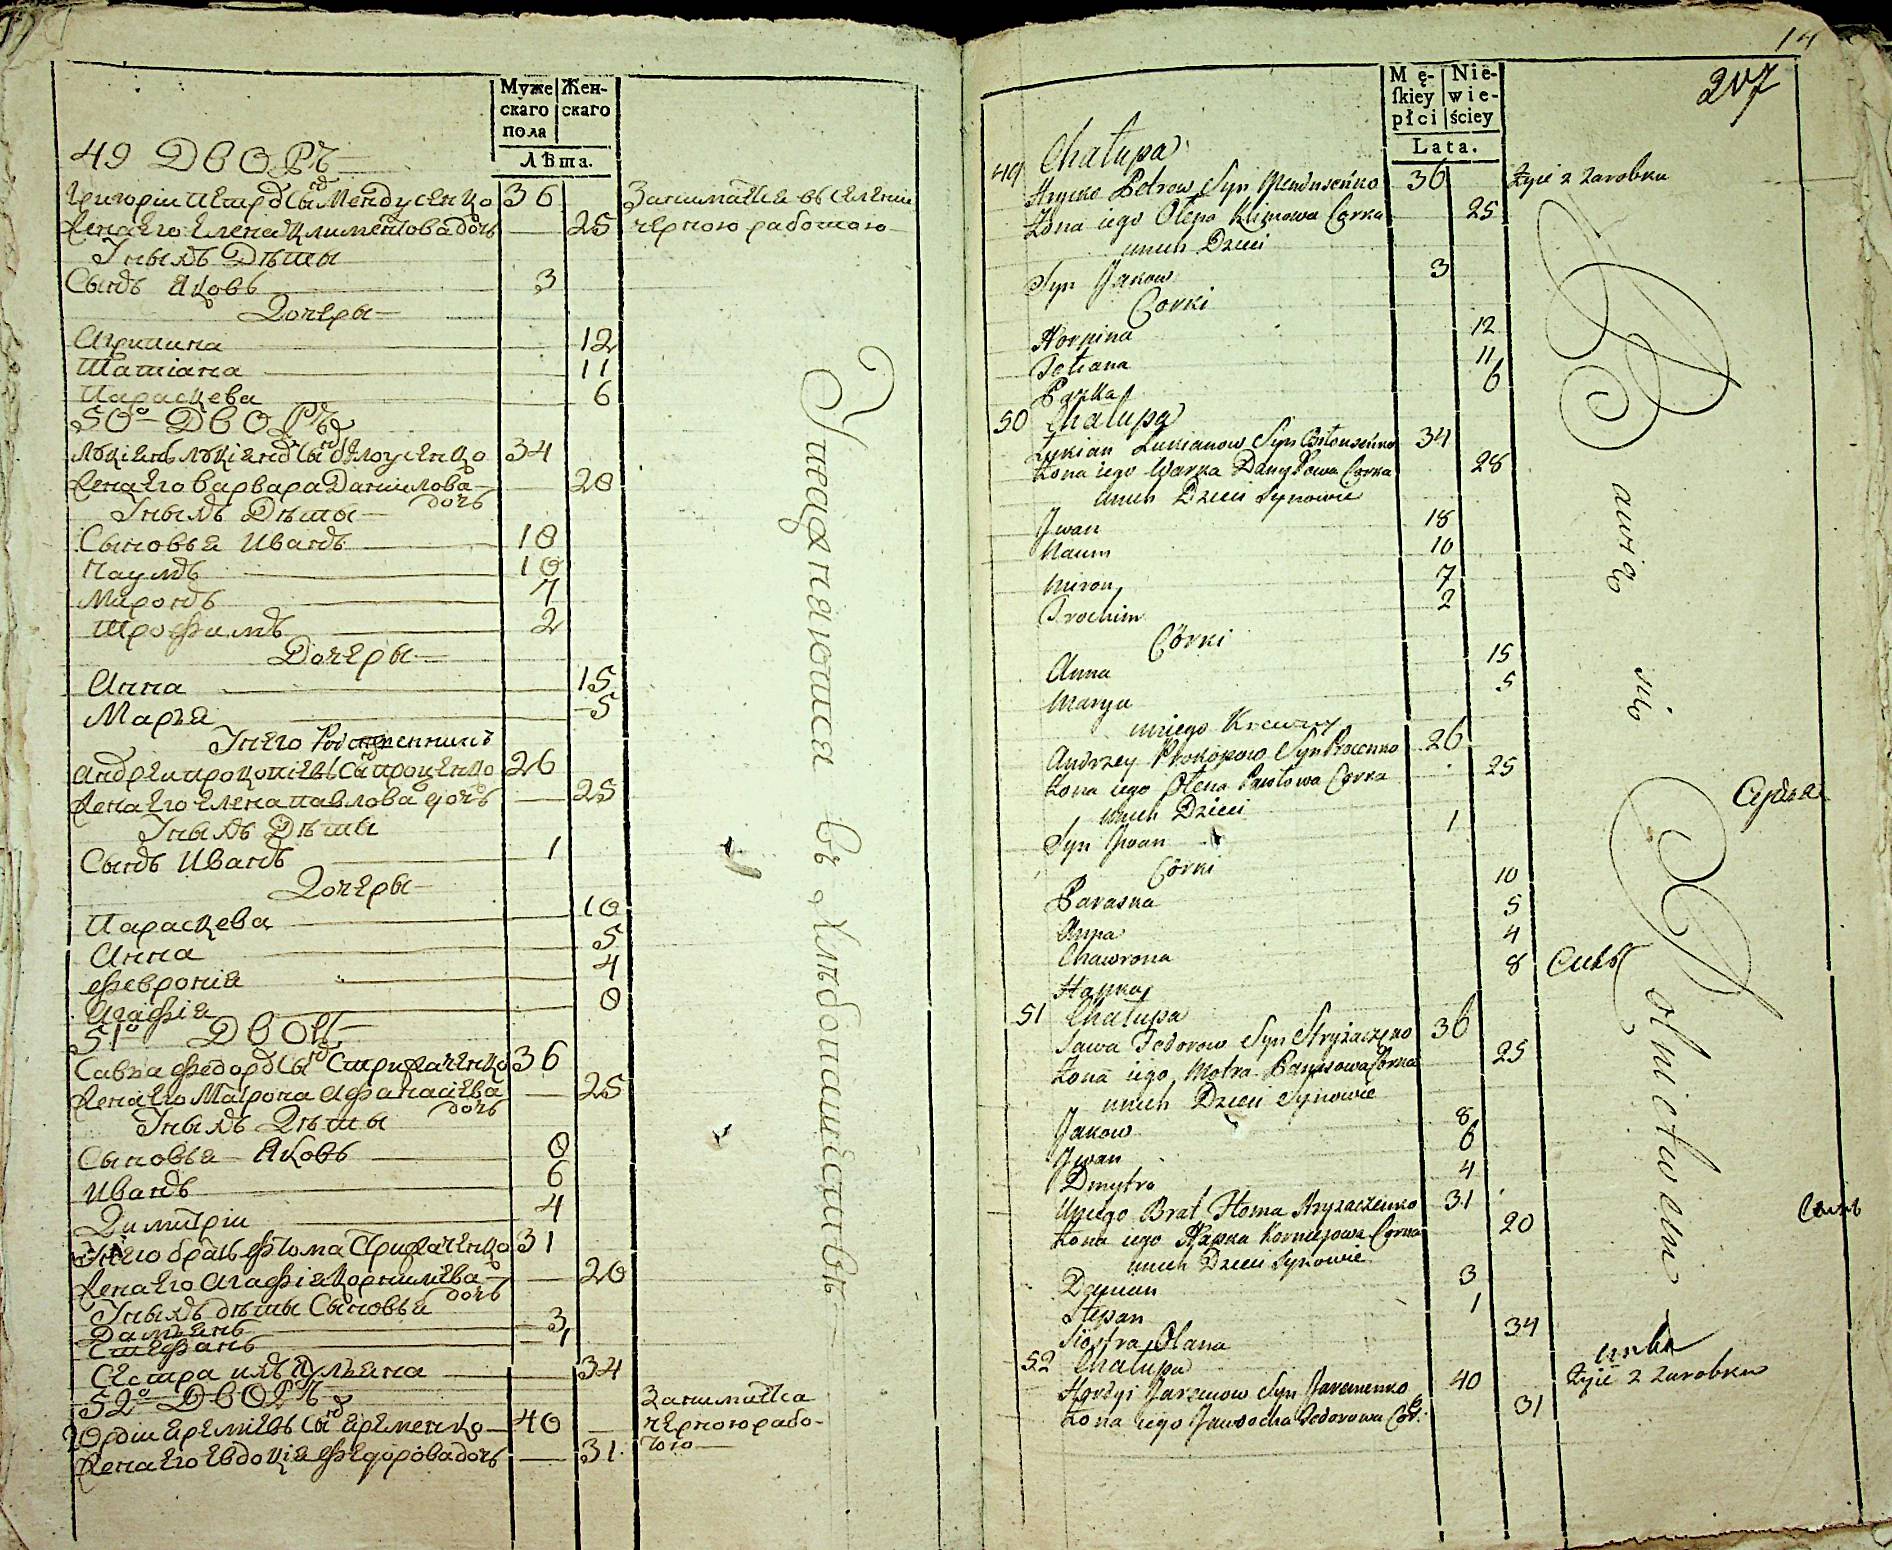 Муже
скаго
пола
Жен-
скаго
Лѣта.
49 Дворъ
Григоріи Петровъ Сынъ Мендусенко 36
Жена Его Елена Климентова дочь 25
У нихъ Дѣти
Сынъ Яковъ 3
Дочери
Агрипина 12
Татіана 11
Параскева 6
Занимается въ селеніи
черною работою
50о Дворъ
Лукіянъ Лукіяновъ Сынъ Бѣлоусенко 34
Жена Его Варвара Данилова дочь 28
У нихъ Дѣти
Сыновья Иванъ 18
Наумъ 10
Миронъ 7
Трофимъ 2
Дочери
Анна 15
Марья 5
У него Родственникъ
Андреи Прокопіевъ Сынъ Проценко 26
Жена Его Елена Павлова дочь 25
У нихъ Дѣти
Сынъ Иванъ 1
Дочери
Параскева 10
Анна 5
Февронія 4
Агафія 8
51о Дворъ
Савва Федоровъ Сынъ Стрижаченко 36
Жена Его Матрона Афанасіева дочь 25
У нихъ Дѣти
Сыновья Яковъ 8
Иванъ 6
Димитріи 4
У него братъ Фома Стрижаченко 31
Жена Его Агафія Корниліева дочь 20
У нихъ дѣти Сыновья
Даміянъ 3
Стефанъ 1
Сестра ихъ Ульяна 34
52о Дворъ
Юрдіи Еремѣевъ Сынъ Еременко 40
Жена Его Евдокія Федорова дочь 31
Занимается
черною рабо-
тою
Упражняются въ хлѣбопашествѣ
14
207
Mę-
ſkiey
płci
Nie-
wie-
ściey
Lata.
49 Chałupa
Hrycko Petrow Syn Mendusenko 36 Żyie z zarobku
Żona iego Olena Klimowa Corka 25
u nich Dzieci
Syn Jakow 3
Corki
Horpina 12
Tetiana 11
Paraska 6
50 Chałupa
Łukian Łukianow Syn Biłousenko 34
Żona iego Warka Danyłowa Corka 28
u nich Dzieci Synowie
Jwan 18
Naum 10
Miron 7
Trochim 2
Córki
Anna 15
Marya 5
u niego Krewny
Andrzey Prokopow Syn Procenko 26
Żona iego Olena Pawłowa Corka 25
u nich Dzieci
Syn Jwan 1
Córki
Paraska 10
Anna 5
Chawrona 4
Hapka 8
51 Chałupa
Sawa Fedorow Syn Stryżaczenko 36
Żona iego Motra Panasowa Corka 25
u nich Dzieci Synowie
Jakow 8
Jwan 6
Dmytro 4
U niego Brat Homa Stryzaczenko 31
Żona iego Hapka Korniejowa Corka 20
u nich Dzieci Synowie
Damian 3
Stepan 1
Siostra Olana 34
52 Chałupa
Hordyi Jaremow Syn Jaremenko 40 Żyie z zarobku
Żona iego Jawdocha Fedorowa Cor: 31
Bawią się Rolnictwem